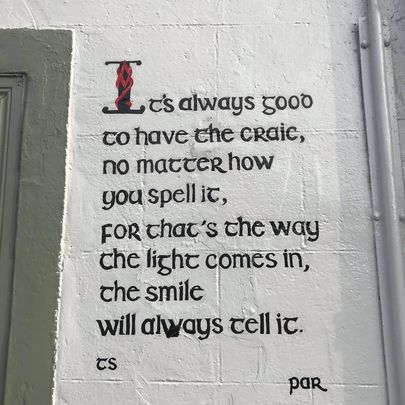 It's always good
to have the craic,
no matter how
you spell it,
for that's the way
the light comes in,
the smile
will always tell it.
ts
par